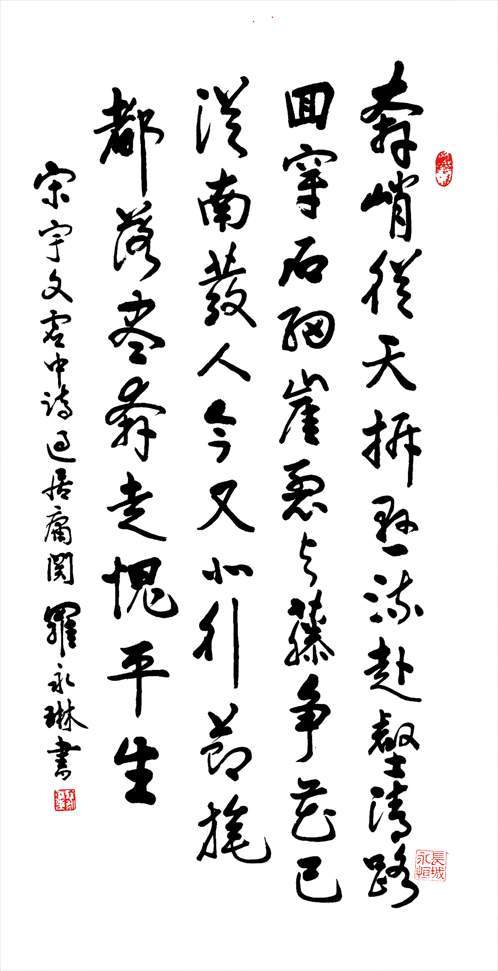 奔峭從天拆懸流赴壑清路
回穿石細崖裂与藤争花已
從南發人今又北行節旄
都落盡奔走愧平生
宋宇文虚中詩過居庸関 羅永琳書
長城永恒